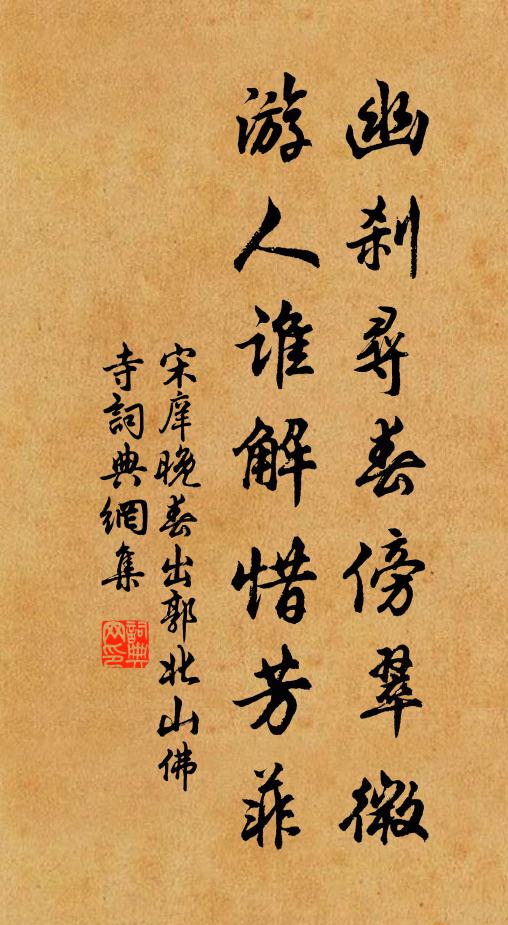 幽刹尋春傍翠微
游人誰解惜芳菲
宋庠晚春出郭北山佛
寺詞典網集
詞典網印